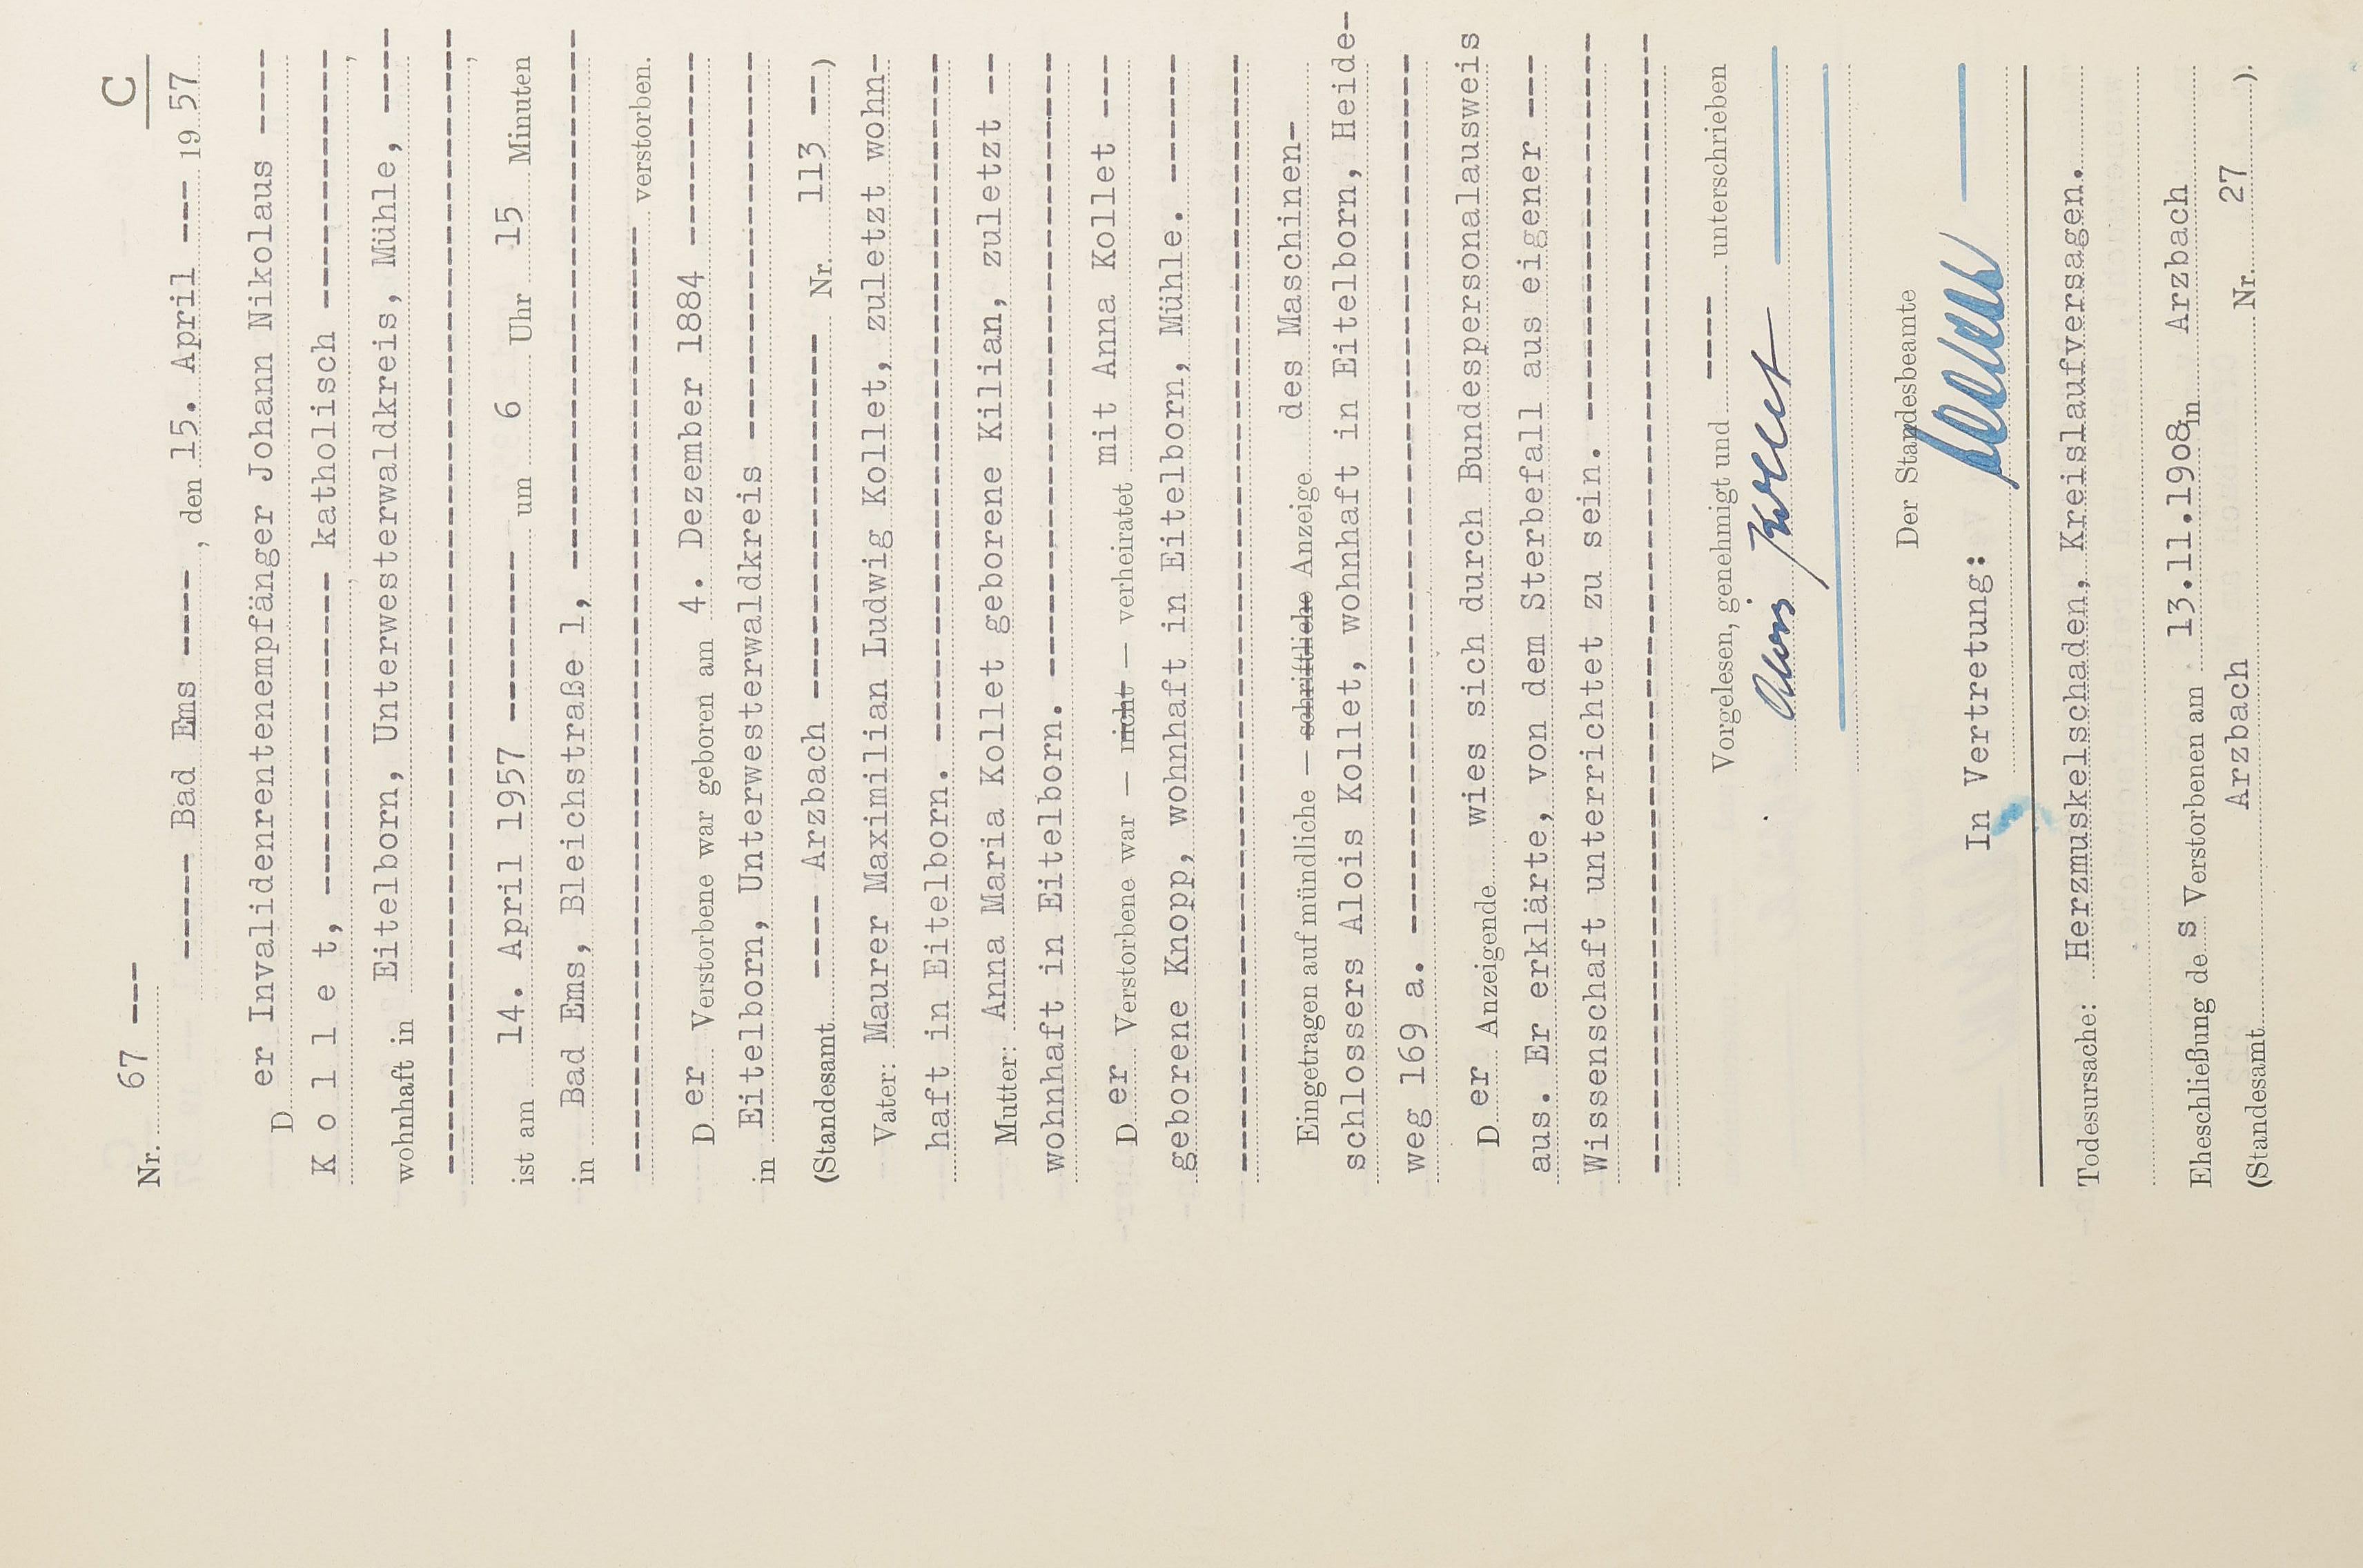 C
Nr. 67 ---
----- Bad Ems ----, den 15. April --- 19 57
D er Invalidenrentenempfänger Johann Nikolaus ----
K o l l e t, --------------- katholisch ------------,
wohnhaft in Eitelborn, Unterwesterwaldkreis, Mühle, ----
-----------------------------------------------------,
ist am 14. April 1957 -------- um 6 Uhr 15 Minuten
in Bad Ems, Bleichstraße 1, --------------------------
-------------------------------------------- verstorben.
D er Verstorbene war geboren am 4. Dezember 1884 ---------
in Eitelborn, Unterwesterwaldkreis ------------------
(Standesamt ---- Arzbach ----------------- Nr. 113 --)
Vater: Maurer Maximilian Ludwig Kollet, zuletzt wohn-
haft in Eitelborn. --------------------------------
Mutter: Anna Maria Kollet geborene Kilian, zuletzt --
wohnhaft in Eitelborn. -----------------------------
D er Verstorbene war — nicht — verheiratet mit Anna Kollet ---
geborene Knopp, wohnhaft in Eitelborn, Mühle. ------
-----------------------------------------------------
Eingetragen auf mündliche — schriftliche Anzeige des Maschinen-
schlossers Alois Kollet, wohnhaft in Eitelborn, Heide-
weg 169 a. -----------------------------------------
D er Anzeigende wies sich durch Bundespersonalausweis
aus. Er erklärte, von dem Sterbefall aus eigener ---
Wissenschaft unterrichtet zu sein. ------------------
-----------------------------------------------------
Vorgelesen, genehmigt und ---- unterschrieben
Alois Kollet
Der Standesbeamte
In Vertretung:
Todesursache: Herzmuskelschaden, Kreislaufversagen.
Eheschließung de s Verstorbenen am 13.11.1908 in Arzbach
(Standesamt Arzbach Nr. 27 ).